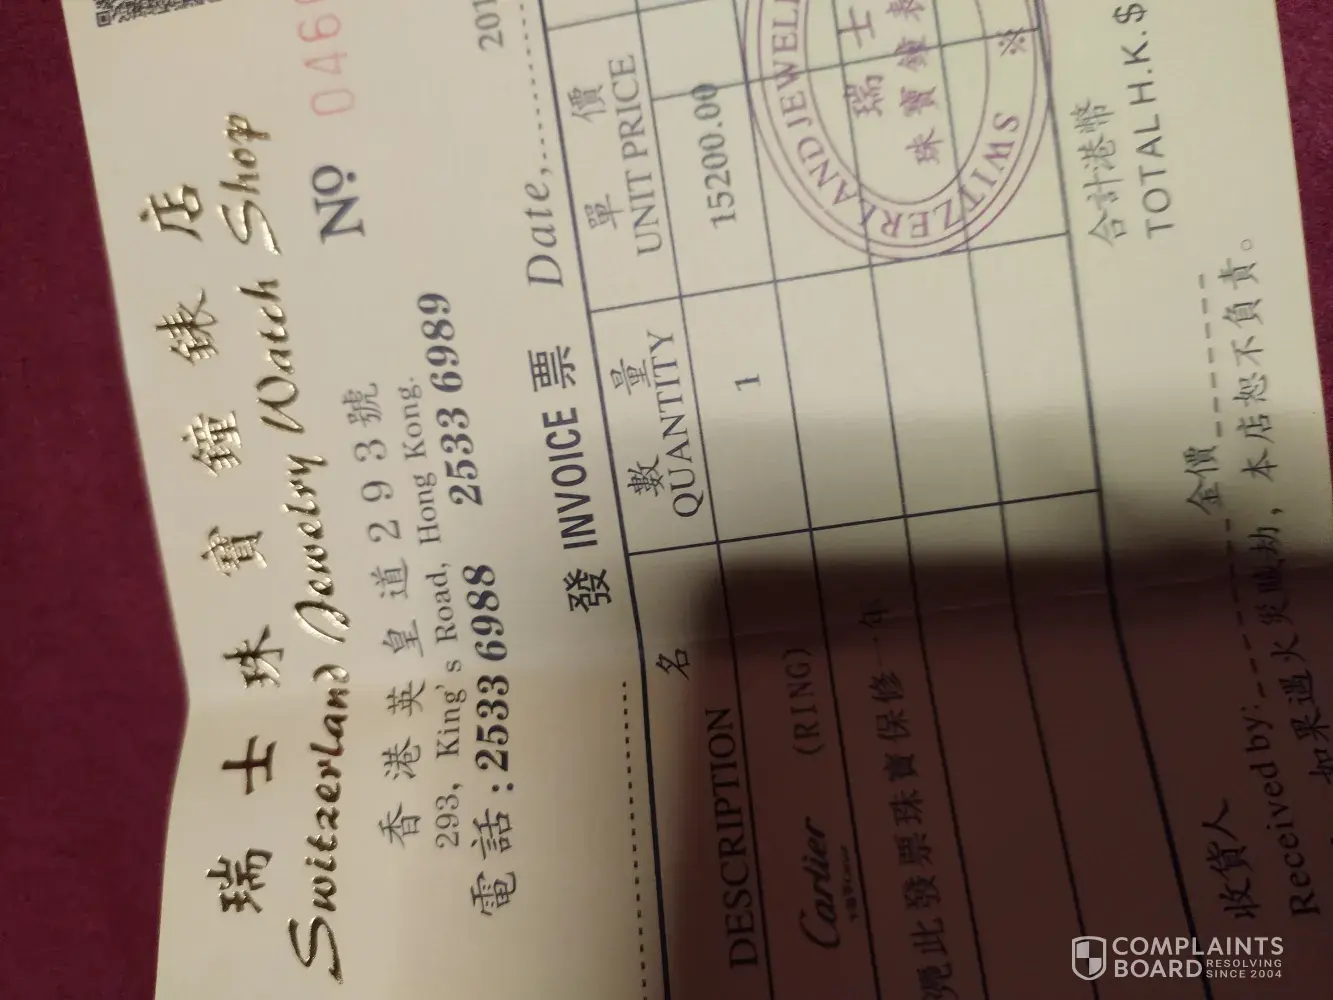 瑞士珠寶鐘錶店
Switzerland Jewelry Watch Shop
香港英皇道293號
293, King's Road, Hong Kong.
電話:2533 6988 2533 6989
Nº 046
發 INVOICE 票
Date,
201
名
DESCRIPTION
數量
QUANTITY
單價
UNIT PRICE
Cartier (RING)
1
15200.00
此發票珠寶保修一年
瑞士
珠寶鐘表
SWITZERLAND JEWELL
※
合計港幣
TOTAL H.K.$
收貨人
Received by:
金價
如果遇火災賊劫,本店恕不負責。
COMPLAINTS
BOARD RESOLVING
SINCE 2004